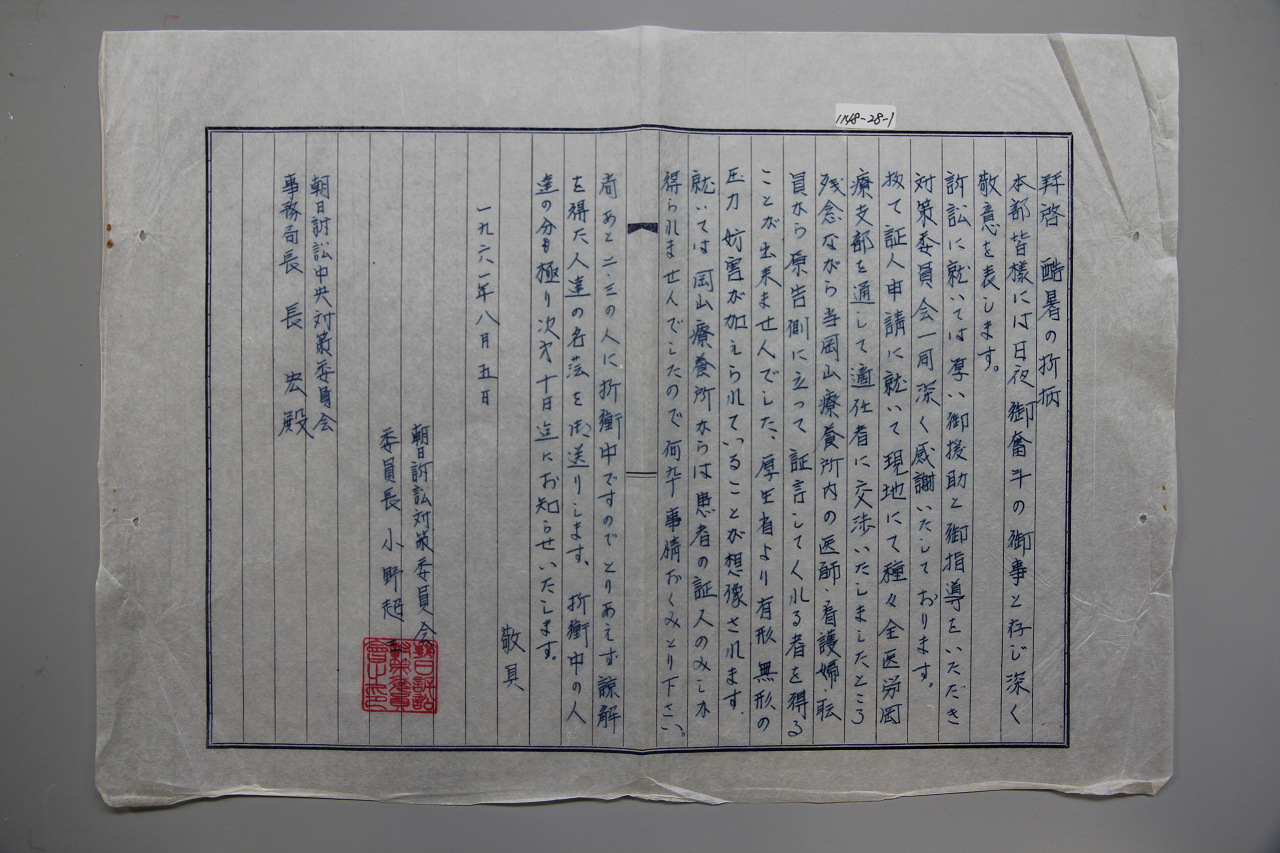 1148-28-1
拝啓 酷暑の折柄
本部皆様には日夜御奮斗の御事と存じ深く
敬意を表します。
訴訟に就いては厚い御援助と御指導をいただき
対策委員会一同深く感謝いたしております。
扨て証人申請に就いて現地にて種々全医労岡
療支部を通して適任者に交渉いたしましたところ
残念ながら当岡山療養所内の医師・看護婦・転
員から原告側に立って証言してくれる者を得る
ことが出来ませんでした、厚生省より有形無形の
圧力妨害が加えられていることが想像されます.
就いては岡山療養所からは患者の証人のみしか
得られませんでしたので何卒事情おくみとり下さい。
尚あと二・三の人に折衝中ですのでとりあえず諒解
を得た人達の名簿を御送りします、折衝中の人
達の分も極り次才十日迄にお知らせいたします。
敬具
一九六一年八月五日
朝日訴訟対策委員会
委員長 小野超
朝日訴訟対策委員会之印
朝日訴訟中央対策委員会
事務局長 長 宏殿